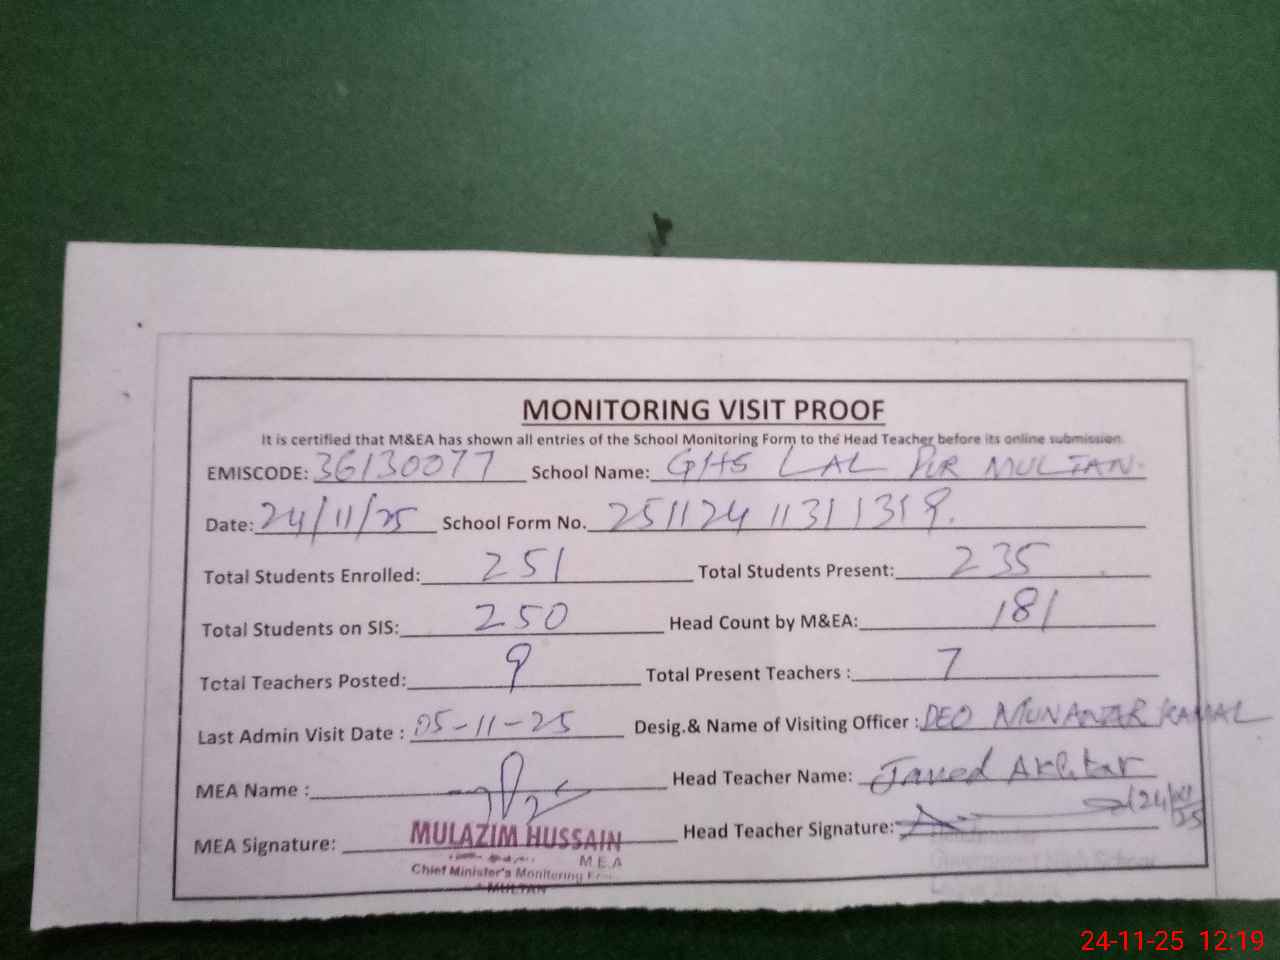 MONITORING VISIT PROOF
It is certified that M&EA has shown all entries of the School Monitoring Form to the Head Teacher before its online submission.
EMISCODE: 36130077 School Name: GHS LAL PUR MULTAN.
Date: 24/11/25 School Form No. 25112411311319.
Total Students Enrolled: 251 Total Students Present: 235
Total Students on SIS: 250 Head Count by M&EA: 181
Total Teachers Posted: 9 Total Present Teachers : 7
Last Admin Visit Date : 05-11-25 Desig.& Name of Visiting Officer : DEO MUNAZAR KAMAL
MEA Name : Head Teacher Name: Javed Akhtar
MEA Signature: MULAZIM HUSSAIN Head Teacher Signature: 24/XI/25
M E A
Chief Minister's Monitoring
MULTAN
24-11-25 12:19